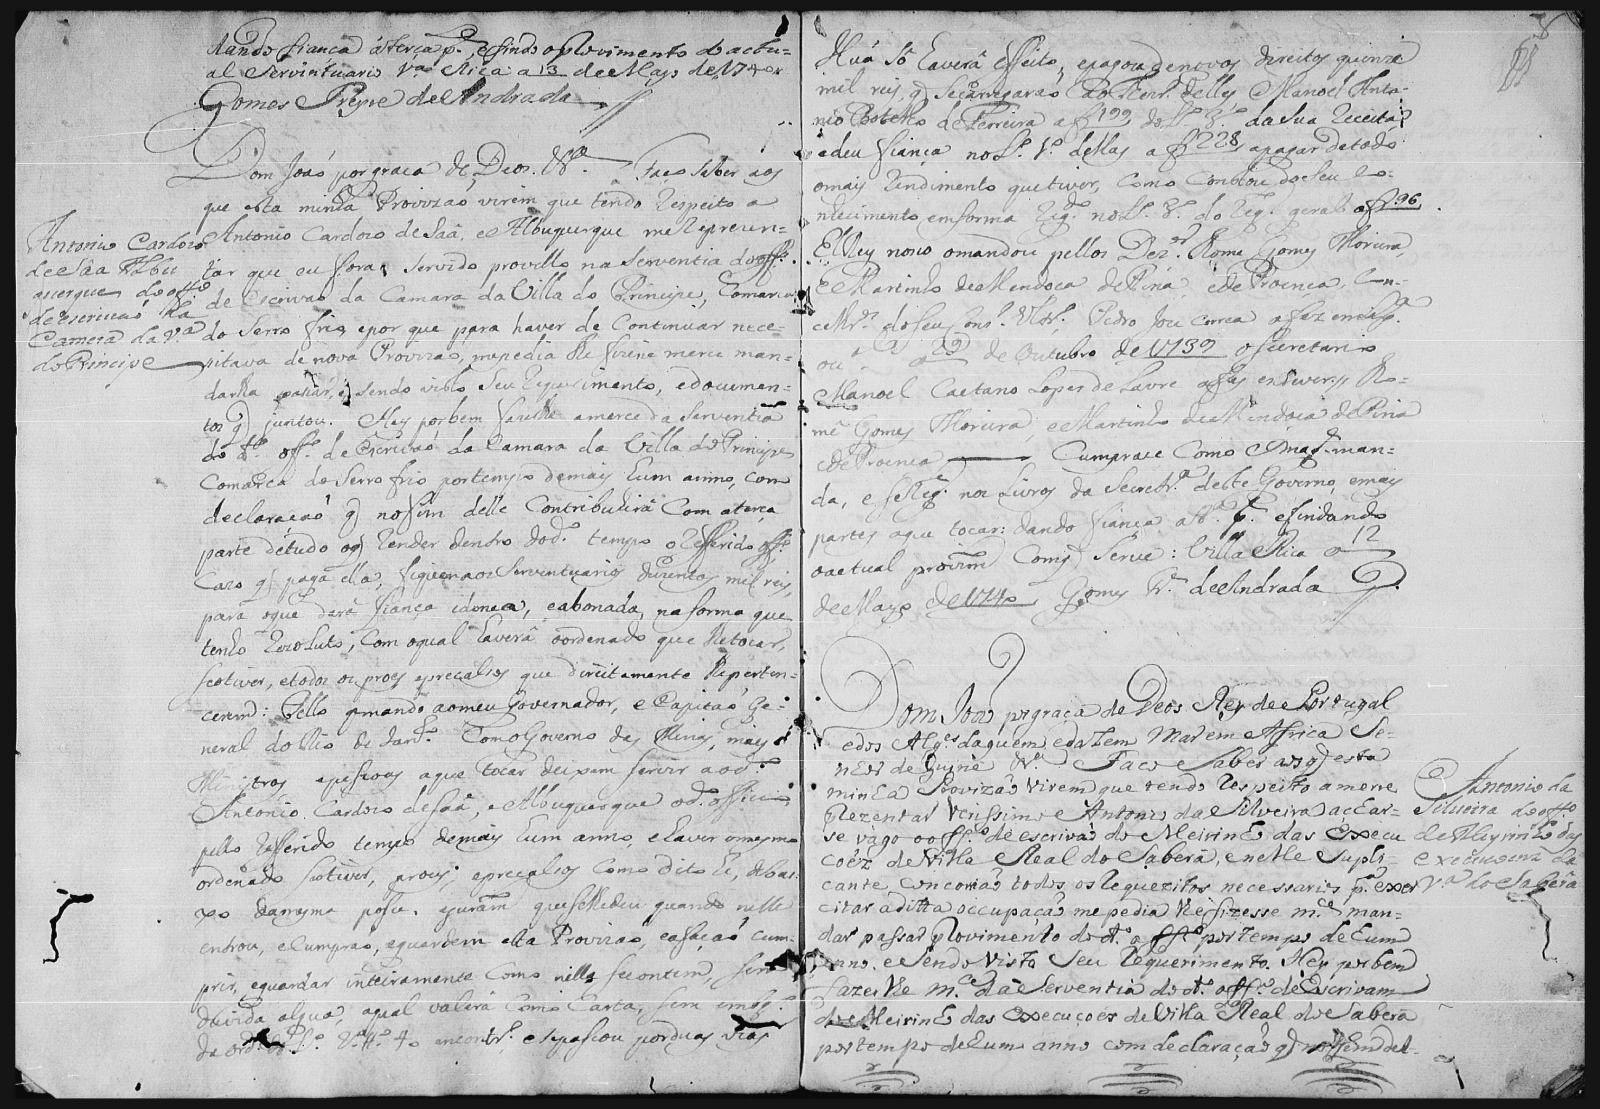 dando fiança á terça p.te, e findo o provimento do actu-
al Serventuario V.a Rica a 13 de Mayo de 1740
Gomes Freyre de Andrada
Dom João por graça de Deos &.a Faço saber aos
que esta minha Provizão virem que tendo respeito a
Antonio Cardozo de Saâ, e Albuquerque me reprezen-
tar que eu fora servido provello na serventia do off.o
de escrivão da Camara da Villa do Principe, Comarca
do Serro frio, e por que para haver de continuar nece-
sitava de nova Provizão, me pedia lhe fizesse merce man-
darlha passar, e sendo visto seu requerimento, e documen-
tos q juntou. Hey por bem fazerlhe a merce da serventia
do d.o off.o de Escrivão da Camara da Villa do Principe
Comarca do Serro frio por tempo de mais hum anno, com
declaração q no fim delle contribuirâ com a terça
parte de tudo o q render dentro do d.o tempo o referido off.o
Cazo q pague della, digo ao Serventuario duzentos mil reis,
para o que darâ fiança idonea, e abonada, na forma que
tenho rezoluto, com o qual haverâ o ordenado que lhe tocar,
se o tiver, e todos os proes e precalsos que direitamente lhe perten-
cerem: Pello q mando ao meu Governador, e Capitão Ge-
neral do Rio de Janr.o Com o Governo das Minas, mais
Ministros, e pessoas a que tocar deixem servir ao d.o
Antonio Cardozo de Saâ, e Albuquerque o d.o officio
pello referido tempo de mais hum anno, e haver o mesmo
ordenado se o tiver, proes, e precalsos como dito he, debai-
xo da mesma posse, e juram.to que se lhe deu quando nelle
entrou, e cumprão, e guardem esta Provizão, e a fação cum-
prir, e guardar inteiramente como nella se contem, sem
duvida algua, a qual valerâ como Carta, sem emb.o
da ord. do L.o 2.o tt.o 40 em contr.o, e se passou por duas vias
Antonio Cardozo
de Saa Albu
querque do off.o
de escrivão da
Camera da V.a
do Principe
Huâ sô haverâ effeito, e pagou de novos direitos quinze
mil reis q se carregarão ao Thezr.o delles Manoel Anto-
nio Botelho de Ferreira a f 199 do L.o 3.o da sua receita
e deu fiança no L.o 3.o dellas a f 228, a pagar de todo
o mais rendimento que tiver, como constou do seu co-
nhecimento em forma reg.do no L.o 3.o do reg.o geral a f 196.
El Rey nosso o mandou pellos Dez.r Rome Gomes Moreira,
e Martinho de Mendoça de Pina, e de Proença, Con-
celhr.os do seu Cons.o Ultr.o Pedro Joze Correa a fez em Lix.a
occ.al a 29 de Outubro de 1739 o Secretario
Manoel Caetano Lopes de Lavre a fez escrever // Ro-
mê Gomes Moreira, e Martinho de Mendoça de Pina
e de Proença Cumprase como S Mag.e man-
da, e se reg.e nos livros da Secretr.a deste Governo, e mais
partes a que tocar: dando fiança a 3.a p.te e findando
o actual provim.to com q Serve: Villa Rica a 12
de Mayo de 1740 Gomes Fr.e de Andrada
Dom João por graça de Deos Rey de Portugal
e dos Alg.es daquem, e dalem Mar em Africa Se-
nhor de Guyne &.a Faço Saber aos q esta
minha Provizão virem que tendo respeito a me re-
prezentar Verissimo e Antonio da Silveira achar-
se vago o off.o de escrivão do Meirinho das execu
çoẽz de Villa Real do Sabarâ, e nelle supli-
cante concorião todos os requezitos necessarios p.a exer
citar a ditta occupação me pedia lhe fizesse m.ce man-
dar passar Provimento do d.o off.o por tempo de hum
anno. e sendo visto seu requerimento. Hey por bem
fazerlhe m.ce da Serventia do d.o off.o de Escrivam
do Meirinho das execuçoẽs de Villa Real do Sabarâ
por tempo de hum anno com declaração q no fim del-
Antonio da
Silveira do off.o
de Meyrinho das
execusoens da
V.a do Sabarâ